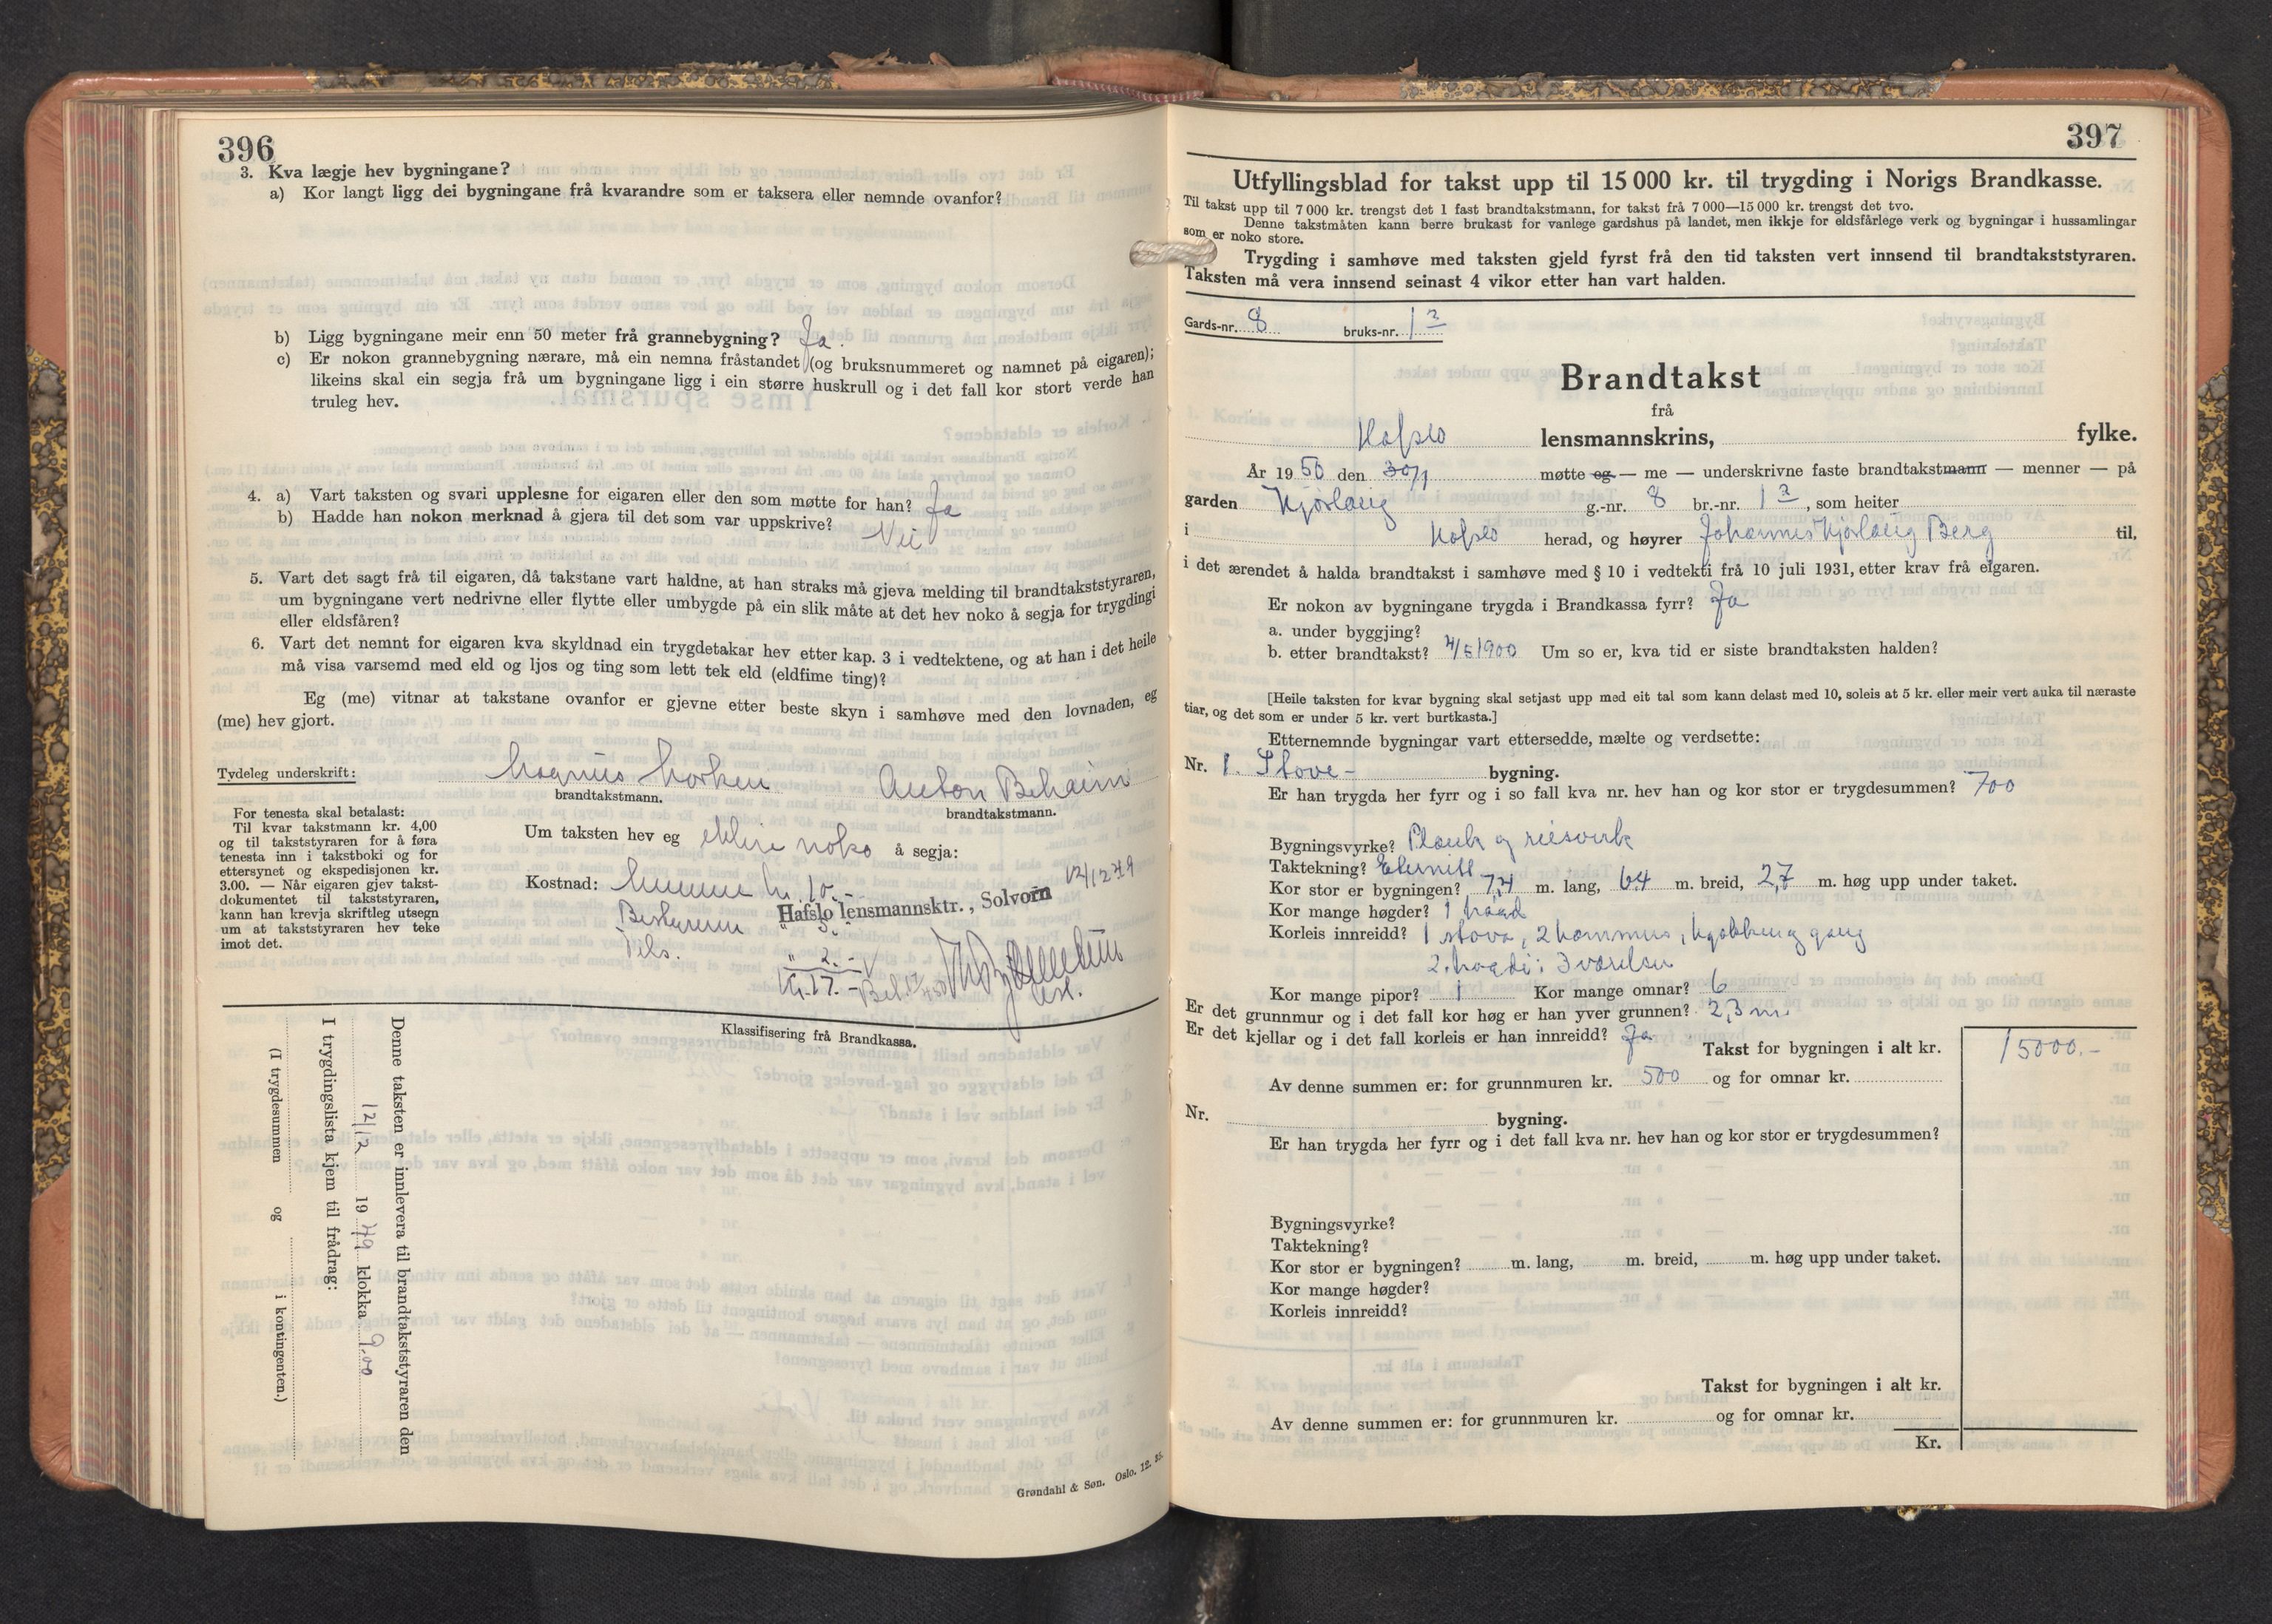 396
3. Kva lægje hev bygningane?
a) Kor langt ligg dei bygningane frå kvarandre som er taksera eller nemnde ovanfor?
b) Ligg bygningane meir enn 50 meter frå grannebygning? Ja.
c) Er nokon grannebygning nærare, må ein nemna fråstandet (og bruksnummeret og namnet på eigaren);
likeins skal ein segja frå um bygningane ligg i ein større huskrull og i det fall kor stort verde han
truleg hev.
4. a) Vart taksten og svari upplesne for eigaren eller den som møtte for han? Ja
b) Hadde han nokon merknad å gjera til det som var uppskrive? Nei
5. Vart det sagt frå til eigaren, då takstane vart haldne, at han straks må gjeva melding til brandtakststyraren,
um bygningane vert nedrivne eller flytte eller umbygde på ein slik måte at det hev noko å segja for trygdingi
eller eldsfåren?
6. Vart det nemnt for eigaren kva skyldnad ein trygdetakar hev etter kap. 3 i vedtektene, og at han i det heile
må visa varsemd med eld og ljos og ting som lett tek eld (eldfime ting)?
Eg (me) vitnar at takstane ovanfor er gjevne etter beste skyn i samhøve med den lovnaden, eg
(me) hev gjort.
Tydeleg underskrift: Magnus Morken Anton Beheim
brandtakstmann. brandtakstmann.
For tenesta skal betalast:
Til kvar takstmann kr. 4,00
og til takststyraren for å føra
tenesta inn i takstboki og for
ettersynet og ekspedisjonen kr.
3.00. — Når eigaren gjev takst-
dokumentet til takststyraren,
kann han krevja skriftleg utsegn
um at takststyraren hev teke
imot det.
Um taksten hev eg ikkje noko å segja:
Kostnad: kr. 10.- 12/12 49
Hafslo lensmannsktr., Solvorn
Bestyreren " 5.-
" 2.-
Kr. 17.-
Klassifisering frå Brandkassa.
Denne taksten er innlevera til brandtakststyraren den
12/12 1949 klokka 9.00
I trygdingslista kjem til frådrag:
(I trygdesummen og i kontingenten.)
Grøndahl & Søn. Oslo. 12. 35.
397
Utfyllingsblad for takst upp til 15 000 kr. til trygding i Norigs Brandkasse.
Til takst upp til 7 000 kr. trengst det 1 fast brandtakstmann, for takst frå 7 000—15 000 kr. trengst det tvo.
Denne takstmåten kann berre brukast for vanlege gardshus på landet, men ikkje for eldsfårlege verk og bygningar i hussamlingar
som er noko store.
Trygding i samhøve med taksten gjeld fyrst frå den tid taksten vert innsend til brandtakststyraren.
Taksten må vera innsend seinast 4 vikor etter han vart halden.
Gards-nr. 8 bruks-nr. 12
Brandtakst
frå
Hafslo lensmannskrins, fylke.
År 1950 den 30/1 møtte eg — me — underskrivne faste brandtakstmann — menner — på
garden Kjørlaug g.-nr. 8 br.-nr. 12, som heiter
i Hafslo herad, og høyrer Johannes Kjørlaug Berg til,
i det ærendet å halda brandtakst i samhøve med § 10 i vedtekti frå 10 juli 1931, etter krav frå eigaren.
Er nokon av bygningane trygda i Brandkassa fyrr? Ja
a. under byggjing?
b. etter brandtakst? 4/5 1900 Um so er, kva tid er siste brandtaksten halden?
[Heile taksten for kvar bygning skal setjast upp med eit tal som kann delast med 10, soleis at 5 kr. eller meir vert auka til næraste
tiar, og det som er under 5 kr. vert burtkasta.]
Etternemnde bygningar vart ettersedde, mælte og verdsette:
Nr. 1. Stove- bygning.
Er han trygda her fyrr og i so fall kva nr. hev han og kor stor er trygdesummen? 700
Bygningsvyrke? Plank og reisverk
Taktekning? Eternitt
Kor stor er bygningen? 7,4 m. lang, 6,4 m. breid, 2,7 m. høg upp under taket.
Kor mange høgder? 1
Korleis innreidd? 1 stova, 2 kammers, kjøkken og gang
2. høgdi: 3 værelser
Kor mange pipor? 1 Kor mange omnar? 6
Er det grunnmur og i det fall kor høg er han yver grunnen? 2,3 m.
Er det kjellar og i det fall korleis er han innreidd? Ja
Takst for bygningen i alt kr. 15000.-
Av denne summen er: for grunnmuren kr. 500 og for omnar kr.
Nr. bygning.
Er han trygda her fyrr og i det fall kva nr. hev han og kor stor er trygdesummen?
Bygningsvyrke?
Taktekning?
Kor stor er bygningen? m. lang, m. breid, m. høg upp under taket.
Kor mange høgder?
Korleis innreidd?
Takst for bygningen i alt kr.
Av denne summen er: for grunnmuren kr. og for omnar kr.
Kr.